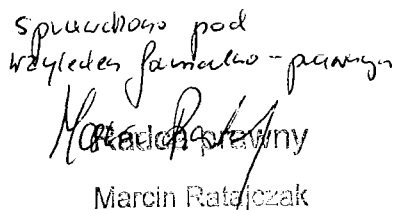 Sprawdzono pod
względem formalno-prawnym
Radca prawny
Marcin Ratajczak